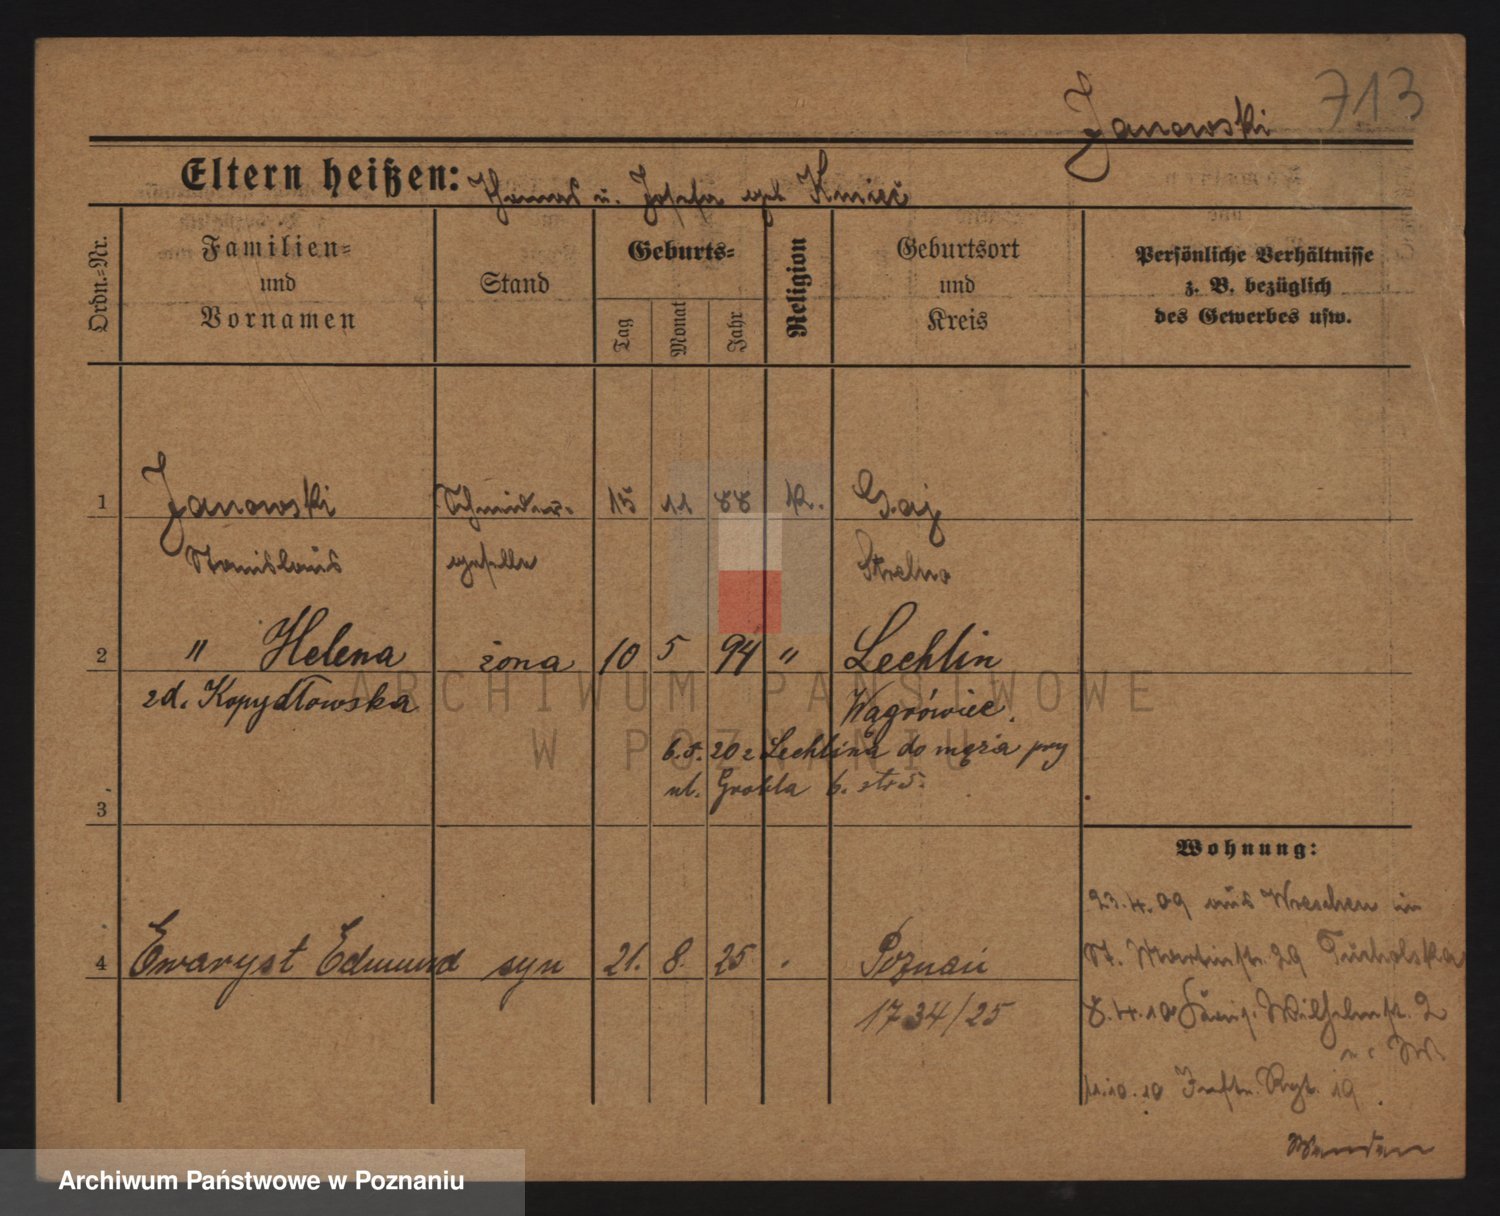 713
Janowski
Eltern heißen: Thomas u. Josefa geb Kmieć
Ordn.=Nr.
Familien=
und
Vornamen
Stand
Geburts=
Tag
Monat
Jahr
Religion
Geburtsort
und
Kreis
Persönliche Verhältnisse
z. B. bezüglich
des Gewerbes usw.
1 Janowski Schneider- 15 11 88 k. Gaj
Stanislaus geselle Strelno
2 " Helena żona 10 5 94 " Lechlin
zd. Kopydłowska Wągrówiec.
6.5.20 z Lechlina do męża przy
ul. Grobla 6.
3
Wohnung:
23.4.09 aus Wreschen in
St. Martinstr. 29 Tucholska
4 Ewaryst Edmund syn 21. 8. 25 . Poznań
1734/25
8.4.10 Wilhelmstr. 2
11.10.10 Inftr. Rgt. 19.
Wenden
ARCHIWUM PAŃSTWOWE
W POZNANIU
Archiwum Państwowe w Poznaniu